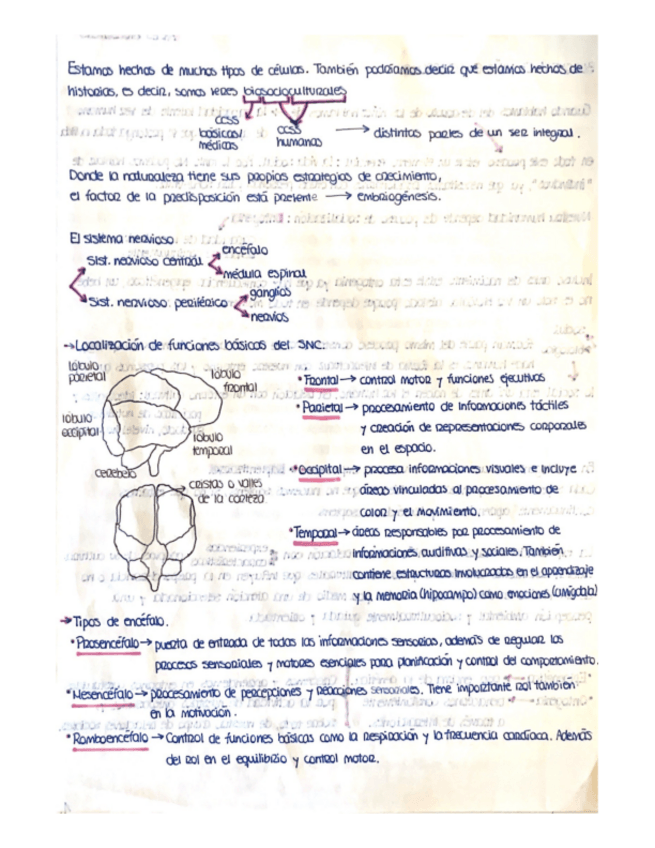 Estamos hechos de muchos tipos de células. También podríamos decir qué estamos hechos de
historias, es decir, somos seres biosocioculturales
ccss
básicas/
médicas
ccss
humanas
→ distintas partes de un ser integral.
Donde la naturaleza tiene sus propias estrategias de crecimiento,
el factor de la predisposición está presente → embriogénesis.
El sistema nervioso
Sist. nervioso central
encéfalo
médula espinal
Sist. nervioso periférico
ganglios
nervios
→Localización de funciones básicas del SNC.
lóbulo
parietal
lóbulo
frontal
lóbulo
occipital
lóbulo
temporal
cerebelo
crestas o valles
de la corteza
•Frontal→ control motor y funciones ejecutivas
•Parietal→ procesamiento de informaciones táctiles
y creación de representaciones corporales
en el espacio.
•Occipital→ procesa informaciones visuales e incluye
áreas vinculadas al procesamiento de
color y el movimiento.
•Temporal→ áreas responsables por procesamiento de
informaciones auditivas y sociales. También
contiene estructuras involucradas en el aprendizaje
y la memoria (hipocampo) como emociones (amígdala)
→Tipos de encéfalo.
•Prosencéfalo→ puerta de entrada de todas las informaciones sensorias, además de regular los
procesos sensoriales y motores esenciales para planificación y control del comportamiento.
•Mesencéfalo→ procesamiento de percepciones y reacciones sensoriales. Tiene importante rol también
en la motivación.
•Romboencéfalo→ Control de funciones básicas como la respiración y la frecuencia cardíaca. Además
del rol en el equilibrio y control motor.